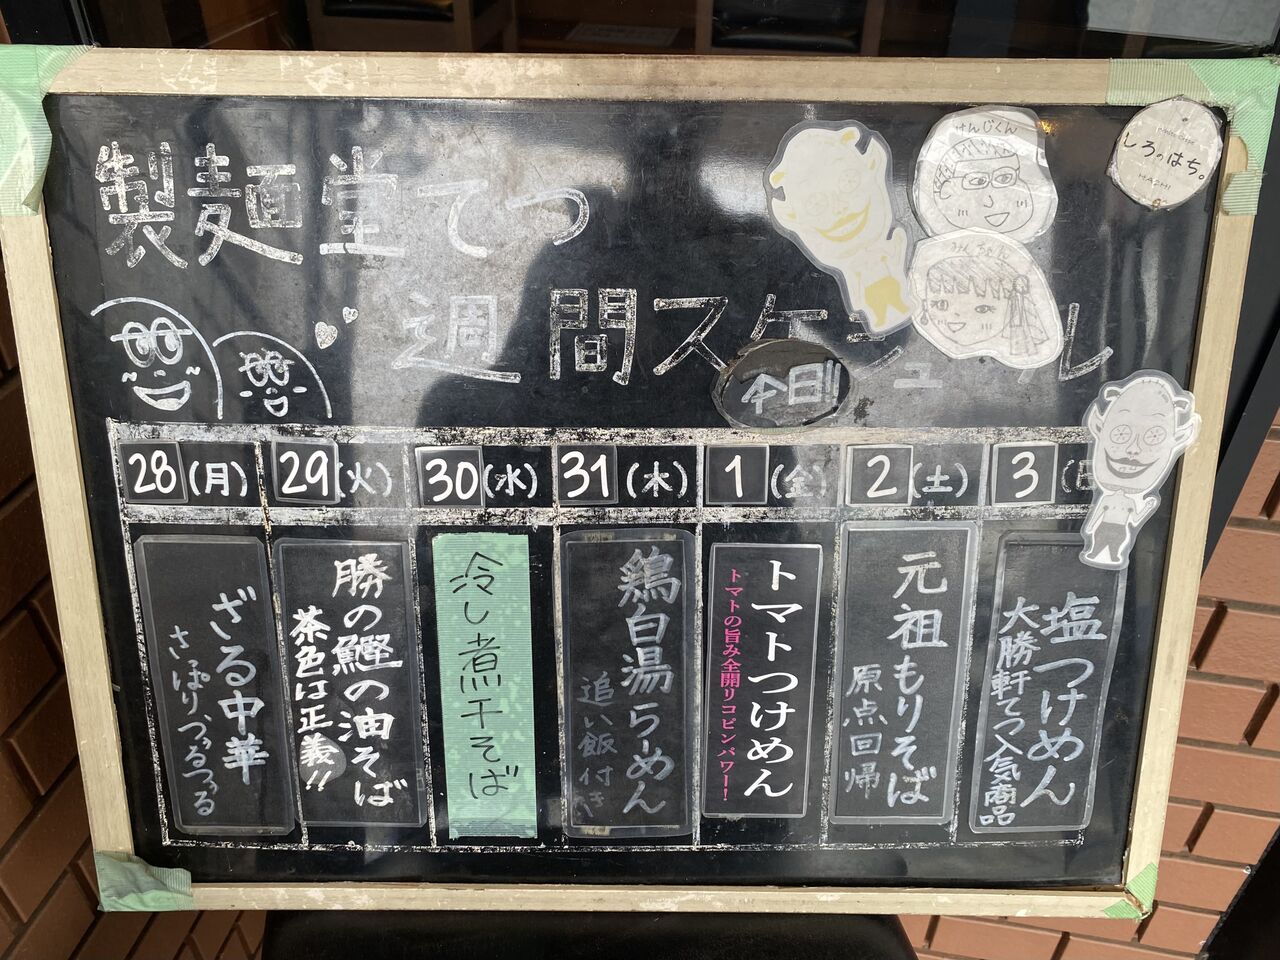 製麺堂てつ
週間スケジュール
けんじくん
みんちゃん
しろのはち。
HACHI
今日!!
28(月)
29(火)
30(水)
31(木)
1(金)
2(土)
3(日
ざる中華
さっぱりつるつる
勝の鰹の油そば
茶色は正義!!
冷し煮干そば
鶏白湯らーめん
追い飯付き
トマトつけめん
トマトの旨み全開リコピンパワー!
元祖もりそば
原点回帰
塩つけめん
大勝軒てつ人気商品